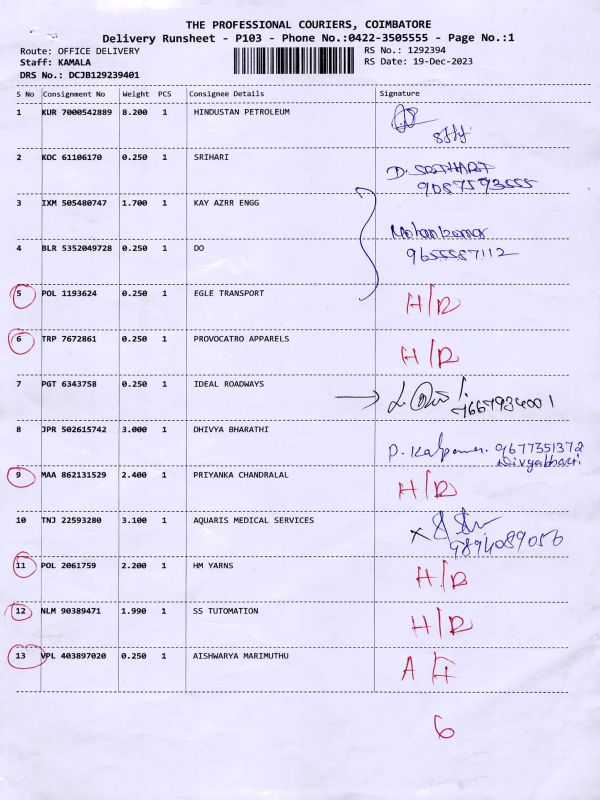 THE PROFESSIONAL COURIERS, COIMBATORE
Delivery Runsheet - P103 - Phone No.:0422-3505555 - Page No.:1
Route: OFFICE DELIVERY RS No.: 1292394
Staff: KAMALA RS Date: 19-Dec-2023
DRS No.: DCJB129239401
S No Consignment No Weight PCS Consignee Details Signature
1 KUR 7000542889 8.200 1 HINDUSTAN PETROLEUM
2 KOC 61106170 0.250 1 SRIHARI D. SRIHARI
9087593555
3 IXM 505480747 1.700 1 KAY AZRR ENGG Mohankumar
4 BLR 5352049728 0.250 1 DO 9655587112
5 POL 1193624 0.250 1 EGLE TRANSPORT H/D
6 TRP 7672861 0.250 1 PROVOCATRO APPARELS H/D
7 PGT 6343758 0.250 1 IDEAL ROADWAYS
7667934001
8 JPR 502615742 3.000 1 DHIVYA BHARATHI P. 9677351372
Divyabharti
9 MAA 862131529 2.400 1 PRIYANKA CHANDRALAL H/D
10 TNJ 22593280 3.100 1 AQUARIS MEDICAL SERVICES
9894089056
11 POL 2061759 2.200 1 HM YARNS H/D
12 NLM 90389471 1.990 1 SS TUTOMATION H/D
13 VPL 403897020 0.250 1 AISHWARYA MARIMUTHU A H
6